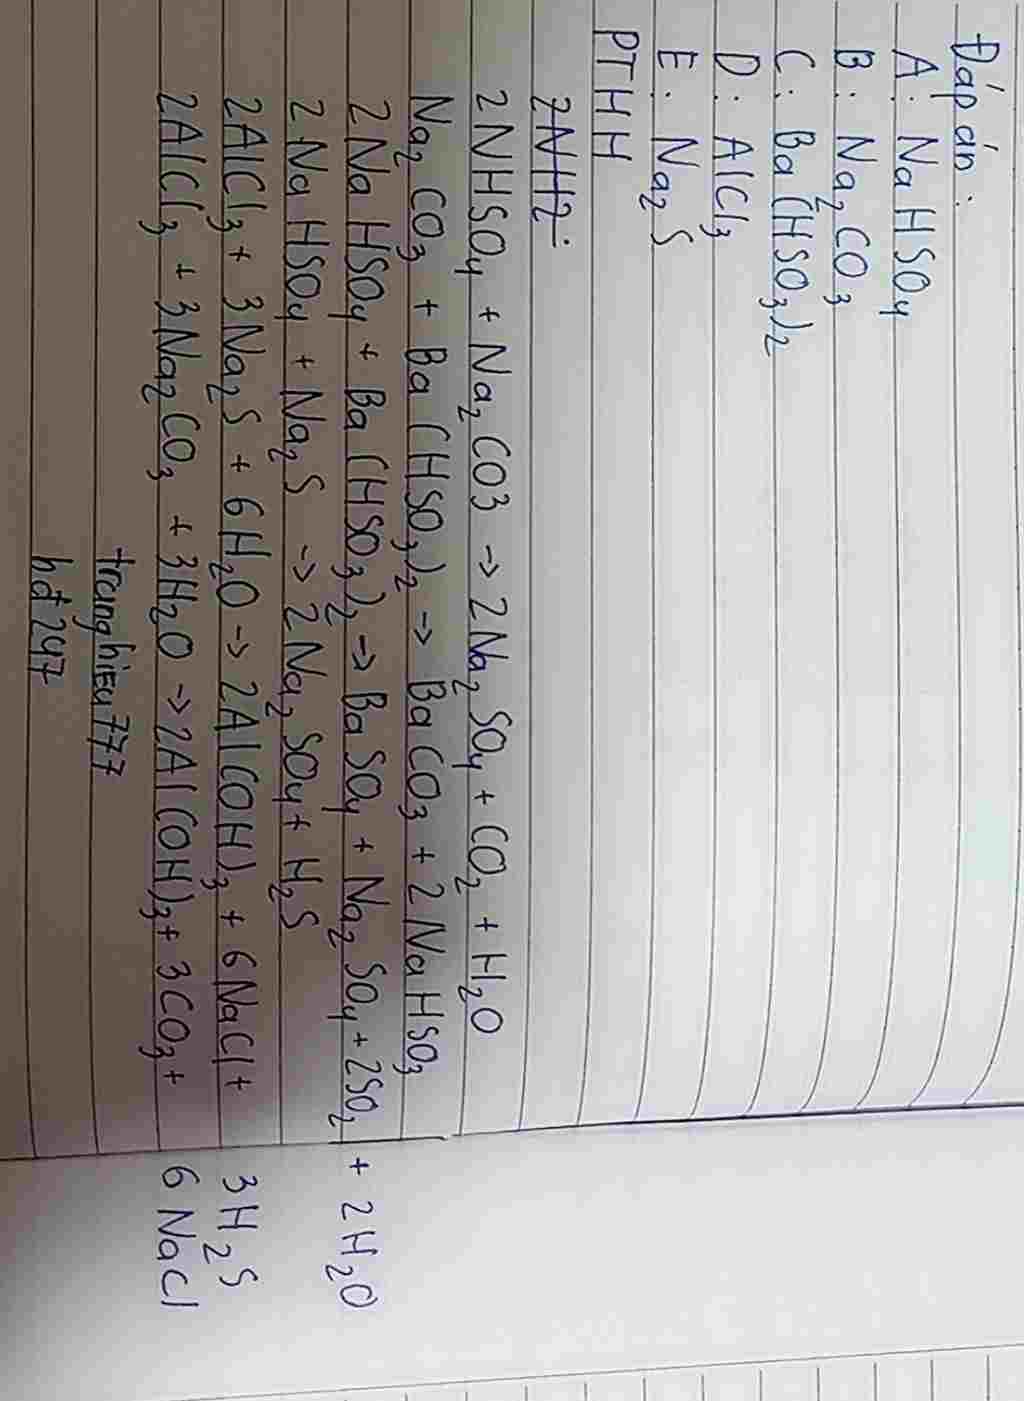 Đáp án:
A: NaHSO4
B: Na2CO3
C: Ba(HSO3)2
D: AlCl3
E: Na2S
PTHH
2NH2:
2NHSO4 + Na2CO3 → 2Na2SO4 + CO2 + H2O
Na2CO3 + Ba(HSO3)2 → BaCO3 + 2NaHSO3
2NaHSO4 + Ba(HSO3)2 → BaSO4 + Na2SO4 + 2SO2 + 2H2O
2NaHSO4 + Na2S → 2Na2SO4 + H2S
2AlCl3 + 3Na2S + 6H2O → 2Al(OH)3 + 6NaCl + 3H2S
2AlCl3 + 3Na2CO3 + 3H2O → 2Al(OH)3 + 3CO3 + 6NaCl
tranghieu777
hđ247